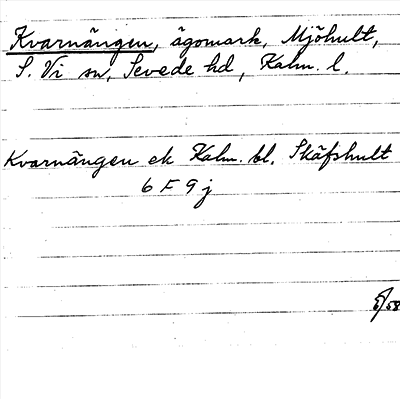 Kvarnängen, ägomark, Mjöhult,
S. Vi sn, Sevede hd, Kalm. l.
Kvarnängen ek Kalm. bl. Skäfshult
6 F 9 j
/58